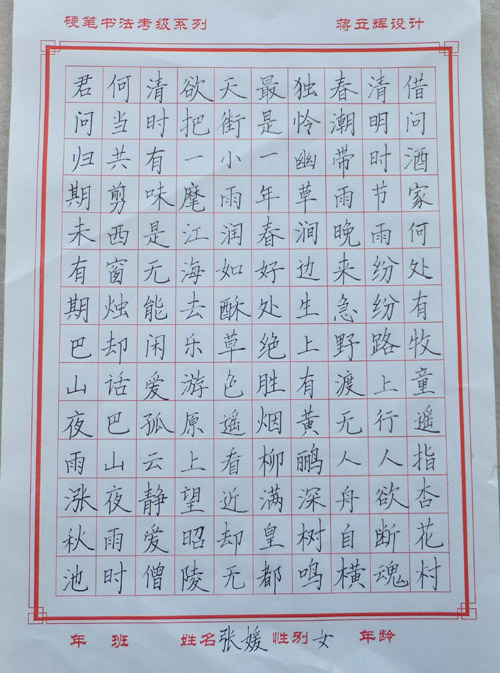 硬笔书法考级系列 蒋立辉设计
君问归期未有期巴山夜雨涨秋池
何当共剪西窗烛却话巴山夜雨时
清时有味是无能闲爱孤云静爱僧
欲把一麾江海去乐游原上望昭陵
天街小雨润如酥草色遥看近却无
最是一年春好处绝胜烟柳满皇都
独怜幽草涧边生上有黄鹂深树鸣
春潮带雨晚来急野渡无人舟自横
清明时节雨纷纷路上行人欲断魂
借问酒家何处有牧童遥指杏花村
年 班 姓名张媛 性别女 年龄